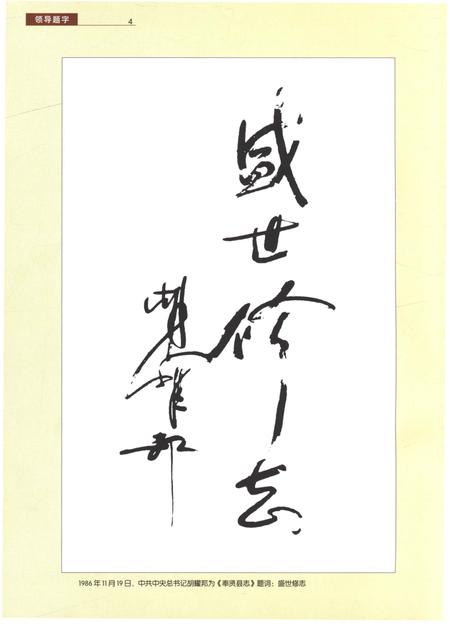 领导题字
4
盛世修志
胡耀邦
1986年11月19日，中共中央总书记胡耀邦为《奉贤县志》题词：盛世修志